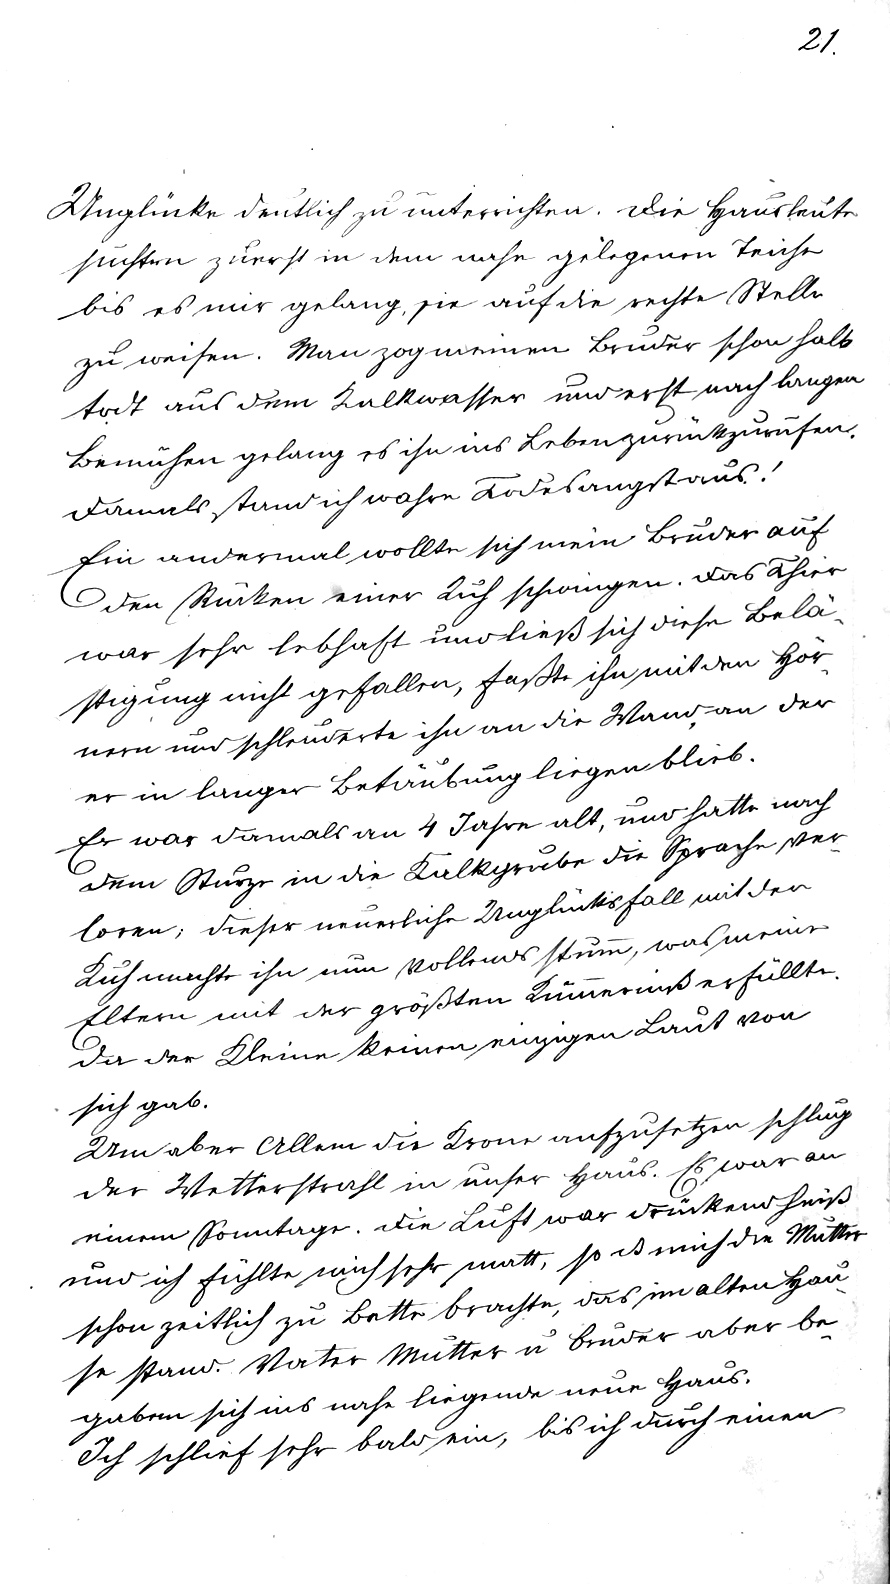 21.
Unglücke deutlich zu unterrichten. Die Hausleute
suchten zuerst in dem nahe gelegenen Teiche
bis es mir gelang, sie auf die rechte Stelle
zu weisen. Man zog meinen Bruder schon halb
todt aus dem Kalkwasser und erst nach langen
Bemühen gelang es ihn ins Leben zurückzurufen.
Damals stand ich wahre Todesangst aus!
Ein andermal wollte sich mein Bruder auf
den Rücken einer Kuh schwingen. Das Thier
war sehr lebhaft und ließ sich diese Belä-
stigung nicht gefallen, faßte ihn mit den Hör-
nern und schleuderte ihn an die Wand, an der
er in langer Betäubung liegen blieb.
Er war damals an 4 Jahre alt, und hatte nach
dem Sturze in die Kalkgrube die Sprache ver-
loren; dieser neuerliche Unglücksfall mit der
Kuh machte ihn nun vollends stum̅, was meine
Eltern mit der größten Küm̅erniß erfüllte.
da der Kleine keinen einzigen Laut von
sich gab.
Um aber Allem die Krone aufzusetzen schlug
der Wetterstrahl in unser Haus. Es war an
einem Sonntage. Die Luft war drückend heiß
und ich fühlte mich sehr matt, so d mich die Mutter
schon zeitlich zu Bette brachte, das im alten Hau-
se stand. Vater Mutter u Bruder aber be-
gaben sich ins nahe liegende neue Haus.
Ich schlief sehr bald ein, bis ich durch einen